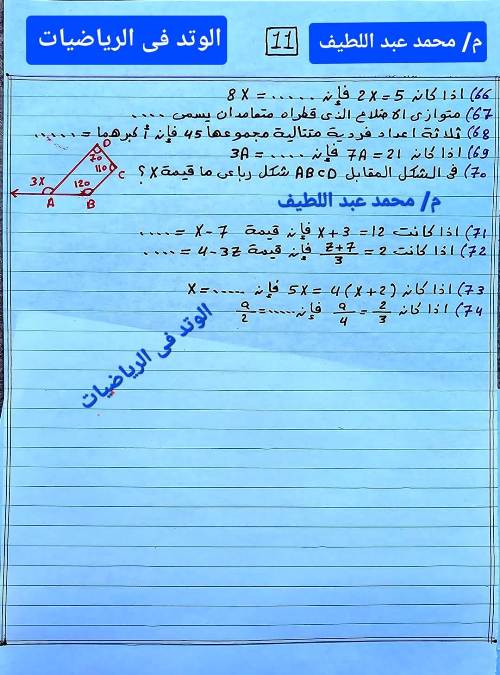 م/ محمد عبد اللطيف
11
الوتد فى الرياضيات
66) اذا كان 2X=5 فإن ..... = 8X
67) متوازى الاضلاع الذى قطراه متعامدان يسمى ....
68) ثلاثة اعداد فردية متتالية مجموعها 45 فإن أكبرهما = ......
69) اذا كان 7A=21 فإن .... = 3A
70) فى الشكل المقابل ABCD شكل رباعى ما قيمة X ؟
D
70
110
C
3X
120
A
B
م/ محمد عبد اللطيف
71) اذا كانت X+3=12 فإن قيمة X-7 = ....
72) اذا كانت (Z+7)/3 = 2 فإن قيمة 4-3Z = ....
73) اذا كان 5X=4(X+2) فإن X=......
74) اذا كان 2/3 = a/4 فإن ..... = a/2
الوتد فى الرياضيات